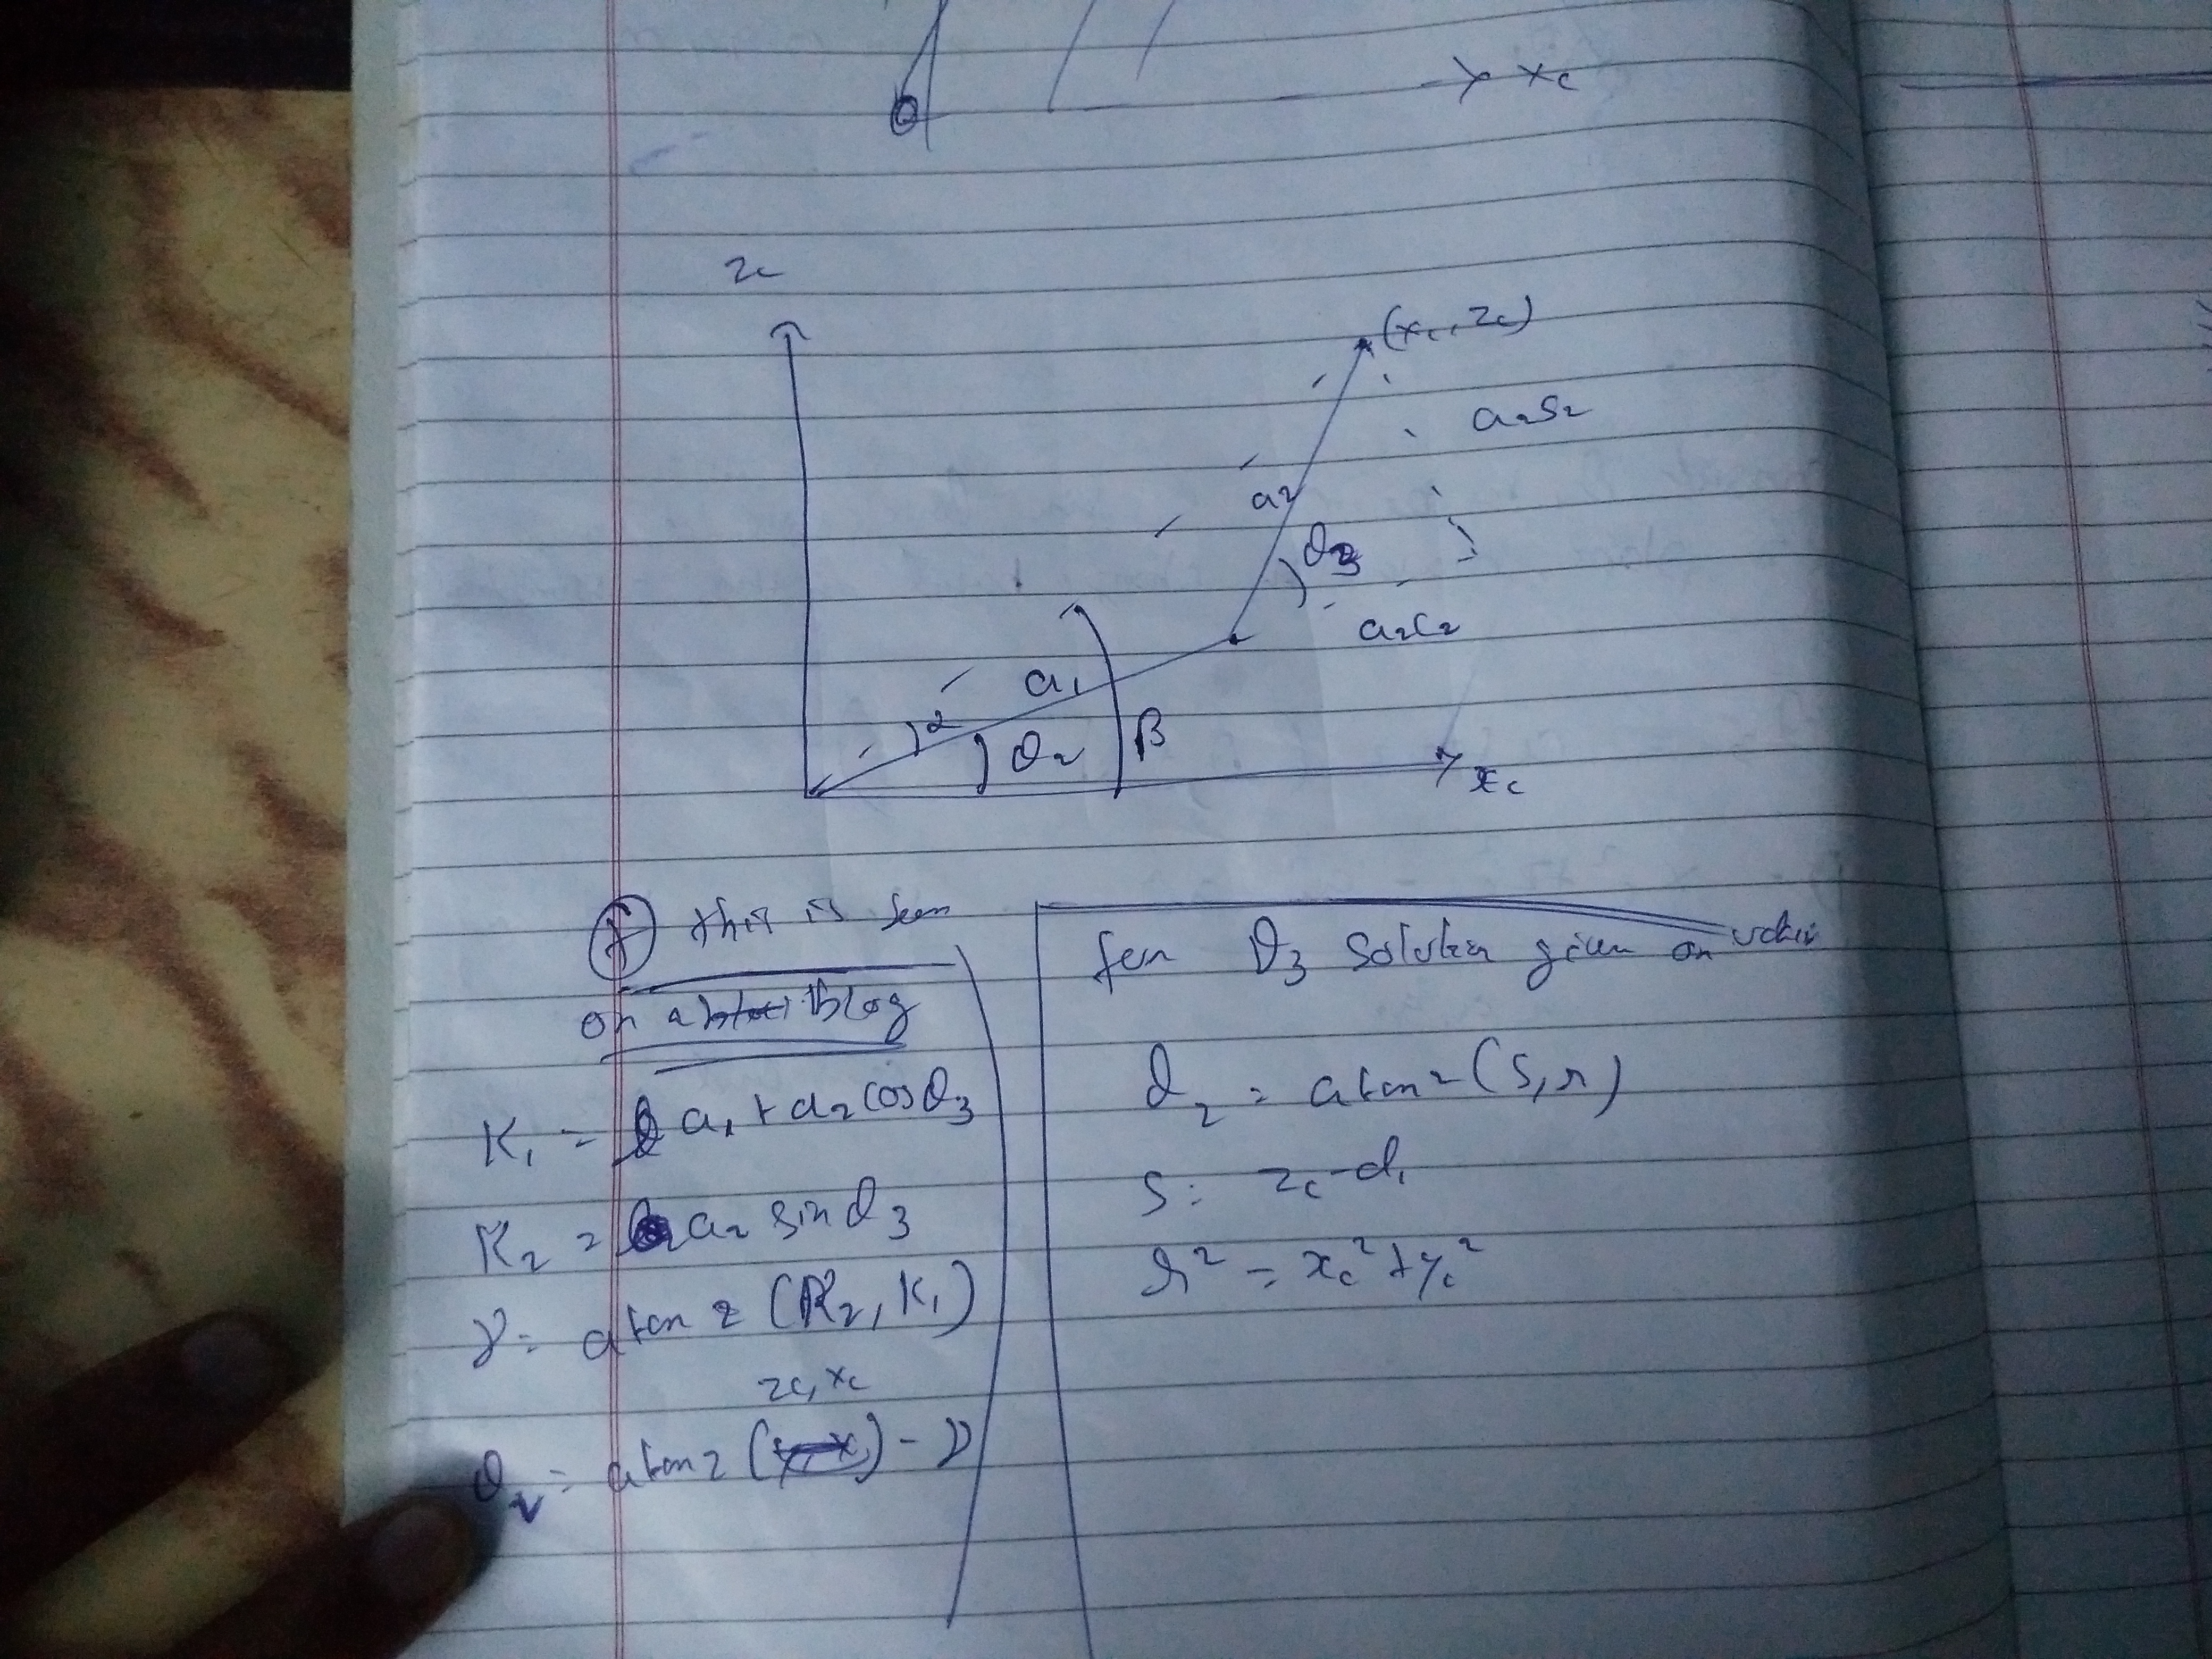 xc
zc
(xc, zc)
a2s2
a2
θ3
a2c2
a1
α
θ2
β
xc
this is seen
on a blog
K1 = a1 + a2 cosθ3
K2 = a2 sinθ3
γ = atan2 (K2, K1)
zc, xc
θ2 = atan2 ( ) - γ
for θ3 solution given on
θ2 = atan2 (s, r)
s = zc - d1
r² = xc² + yc²